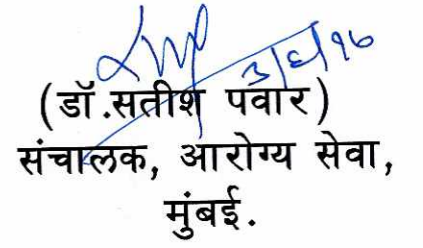 ३/६/१७
(डॉ.सतीश पवार)
संचालक, आरोग्य सेवा,
मुंबई.